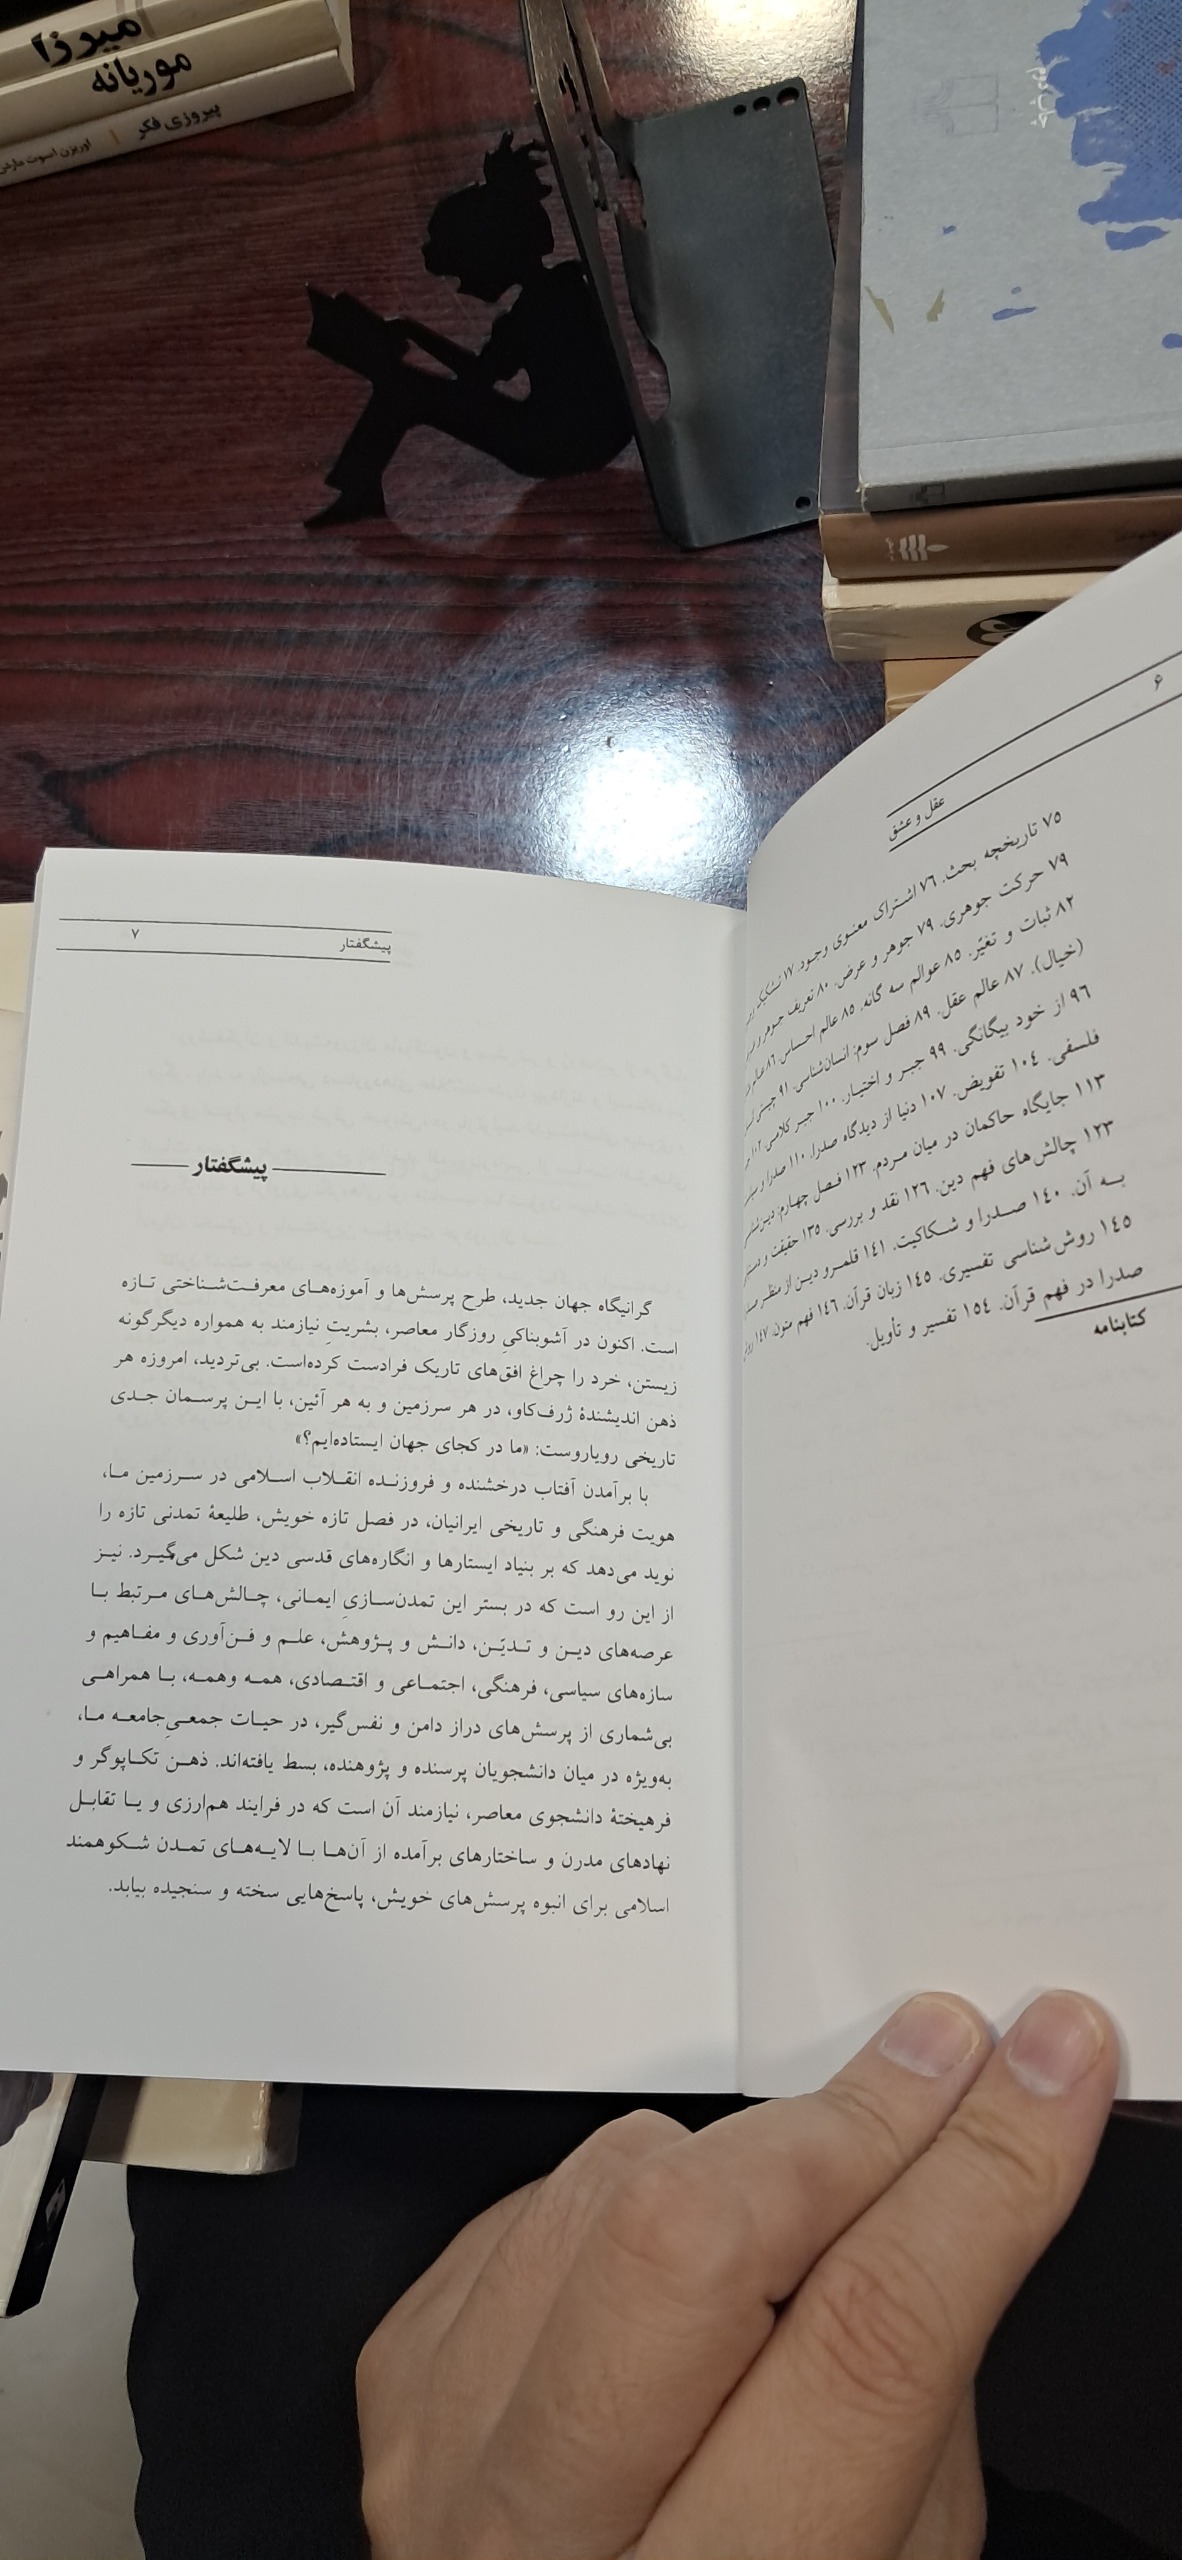 میرزا
موریانه
پیروزی فکر | اوریزن اسوت ماردن
چاپ دوم
۶
عقل و عشق
۷۵ تاریخچه بحث. ۷۶ اشتراک معنوی وجود. ۷۷ تشکیک
۷۹ حرکت جوهری. ۷۹ جوهر و عرض. ۸۰ تعریف جوهر و
۸۲ ثبات و تغیّر. ۸۵ عوالم سه گانه. ۸۵ عالم احساس. ۸۶ عالم
(خیال). ۸۷ عالم عقل. ۸۹ فصل سوم: انسان‌شناسی. ۹۱
۹۶ از خود بیگانگی. ۹۹ جبر و اختیار. ۱۰۰ جبر کلامی. ۱۰۲
فلسفی. ۱۰۴ تفویض. ۱۰۷ دنیا از دیدگاه صدرا. ۱۱۰ صدرا و
۱۱۳ جایگاه حاکمان در میان مردم. ۱۲۳ فصل چهارم: دین‌شناسی
۱۲۳ چالش‌های فهم دین. ۱۲۶ نقد و بررسی. ۱۳۵ حقیقت و
به آن. ۱۴۰ صدرا و شکاکیت. ۱۴۱ قلمرو دین از منظر
۱۴۵ روش شناسی تفسیری. ۱۴۵ زبان قرآن. ۱۴۶ فهم متون. ۱۴۷
صدرا در فهم قرآن. ۱۵۴ تفسیر و تأویل.
کتابنامه
پیشگفتار ۷
پیشگفتار
گرانیگاه جهان جدید، طرح پرسش‌ها و آموزه‌های معرفت‌شناختی تازه
است. اکنون در آشوبناکیِ روزگار معاصر، بشریتِ نیازمند به همواره دیگرگونه
زیستن، خرد را چراغ افق‌های تاریک فرادست کرده‌است. بی‌تردید، امروزه هر
ذهن اندیشندهٔ ژرف‌کاو، در هر سرزمین و به هر آئین، با این پرسمان جدی
تاریخی رویاروست: «ما در کجای جهان ایستاده‌ایم؟»
با برآمدن آفتاب درخشنده و فروزنده انقلاب اسلامی در سرزمین ما،
هویت فرهنگی و تاریخی ایرانیان، در فصل تازه خویش، طلیعهٔ تمدنی تازه را
نوید می‌دهد که بر بنیاد ایستارها و انگاره‌های قدسی دین شکل می‌گیرد. نیز
از این رو است که در بستر این تمدن‌سازیِ ایمانی، چالش‌های مرتبط با
عرصه‌های دین و تدیّن، دانش و پژوهش، علم و فن‌آوری و مفاهیم و
سازه‌های سیاسی، فرهنگی، اجتماعی و اقتصادی، همه وهمه، با همراهی
بی‌شماری از پرسش‌های دراز دامن و نفس‌گیر، در حیات جمعیِ‌جامعه ما،
به‌ویژه در میان دانشجویان پرسنده و پژوهنده، بسط یافته‌اند. ذهن تکاپوگر و
فرهیختهٔ دانشجوی معاصر، نیازمند آن است که در فرایند هم‌ارزی و یا تقابل
نهادهای مدرن و ساختارهای برآمده از آن‌ها با لایه‌های تمدن شکوهمند
اسلامی برای انبوه پرسش‌های خویش، پاسخ‌هایی سخته و سنجیده بیابد.